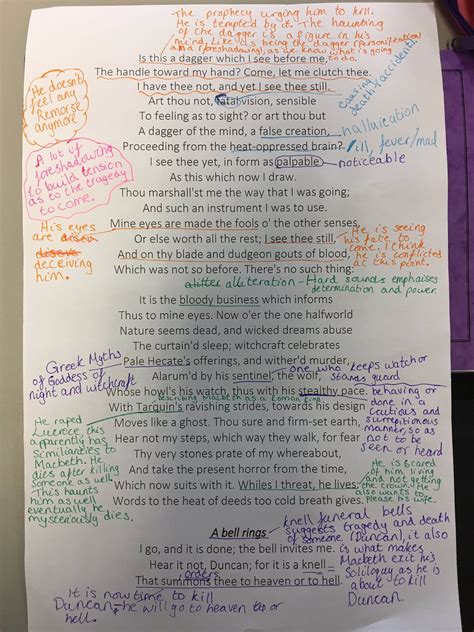 The prophecy urging him to kill.
He is tempted by it. The haunting
of the dagger is a figure in his
mind. Like as being the dagger (personification
and foreshadowing), as we know what is going
to do.
Is this a dagger which I see before me,
The handle toward my hand? Come, let me clutch thee.
I have thee not, and yet I see thee still.
Art thou not, fatal vision, sensible
To feeling as to sight? or art thou but
A dagger of the mind, a false creation,
Proceeding from the heat-oppressed brain?
I see thee yet, in form as palpable
As this which now I draw.
Thou marshall'st me the way that I was going;
And such an instrument I was to use.
Mine eyes are made the fools o' the other senses,
Or else worth all the rest; I see thee still,
And on thy blade and dudgeon gouts of blood,
Which was not so before. There's no such thing:
It is the bloody business which informs
Thus to mine eyes. Now o'er the one halfworld
Nature seems dead, and wicked dreams abuse
The curtain'd sleep; witchcraft celebrates
Pale Hecate's offerings, and wither'd murder,
Alarum'd by his sentinel, the wolf,
Whose howl's his watch, thus with his stealthy pace.
With Tarquin's ravishing strides, towards his design
Moves like a ghost. Thou sure and firm-set earth,
Hear not my steps, which way they walk, for fear
Thy very stones prate of my whereabout,
And take the present horror from the time,
Which now suits with it. Whiles I threat, he lives:
Words to the heat of deeds too cold breath gives.
A bell rings
I go, and it is done; the bell invites me.
Hear it not, Duncan; for it is a knell
That summons thee to heaven or to hell.
He doesn't
feel any
Remorse
anymore
causing
death/accident
hallucination
ill, fever/mad
noticeable
A lot of
foreshadowing
to build tension
as to the tragedy
to come.
His eyes
are
deceiving
him.
He is seeing
his fate to
come. I think
he is conflicted
at this point.
alliteration - Hard sounds emphaises
determination and power.
Greek Myths
of Goddess of
night and witchcraft
one who keeps watch or
stands guard
describing Macbeth as a Roman King
behaving or
done in a
cautious and
surreptitious
manner, so as
not to be
seen or heard
He raped
Lucrece this
apparently has
similarities to
Macbeth. He
dies after killing
someone as well
This haunts
him as well
eventually he
mysteriously dies.
He is scared
of him living
and not getting
the crown. He
also wants to
please his wife.
knell funeral bells
suggests tragedy and death
of someone (Duncan), it also
is what makes
Macbeth exit his
Soliloquy as he is
about to kill
Duncan.
orders
It is now time to kill
Duncan, he will go to heaven or
hell.